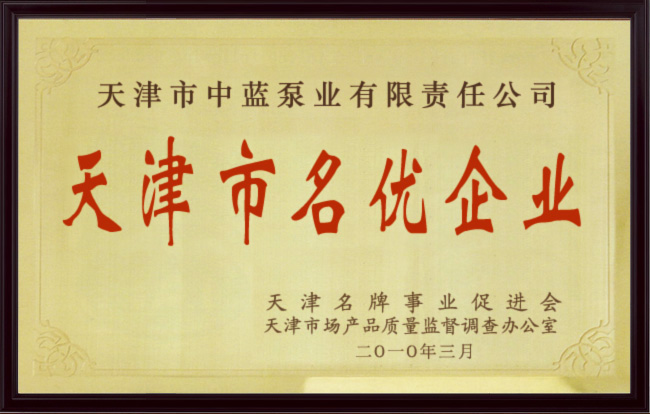 天津市中蓝泵业有限责任公司
天津市名优企业
天津名牌事业促进会
天津市场产品质量监督调查办公室
二〇一〇年三月